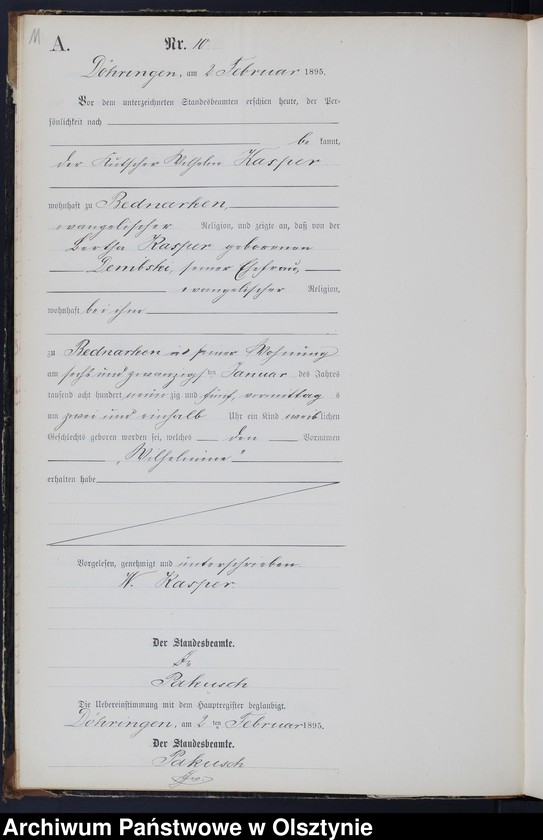 11
A.
Nr. 10
Döhringen, am 2 Februar 1895.
Vor dem unterzeichneten Standesbeamten erschien heute, der Per-
sönlichkeit nach
be kannt,
der Kutscher Wilhelm Kasper
wohnhaft zu Bednarken,
evangelischer Religion, und zeigte an, daß von der
Bertha Kasper geborenen
Dembski, seiner Ehefrau,
evangelischer Religion,
wohnhaft bei ihm
zu Bednarken in seiner Wohnung
am sechs und zwanzigsten Januar des Jahres
tausend acht hundert neun zig und fünf, vormittag s
um zwei und einhalb Uhr ein Kind weiblichen
Geschlechts geboren worden sei, welches den Vornamen
„Wilhelmine"
erhalten habe
Vorgelesen, genehmigt und unterschrieben.
W. Kasper.
Der Standesbeamte.
Pakusch
Die Uebereinstimmung mit dem Hauptregister beglaubigt.
Döhringen, am 2 ten Februar 1895.
Der Standesbeamte.
Pakusch
Archiwum Państwowe w Olsztynie